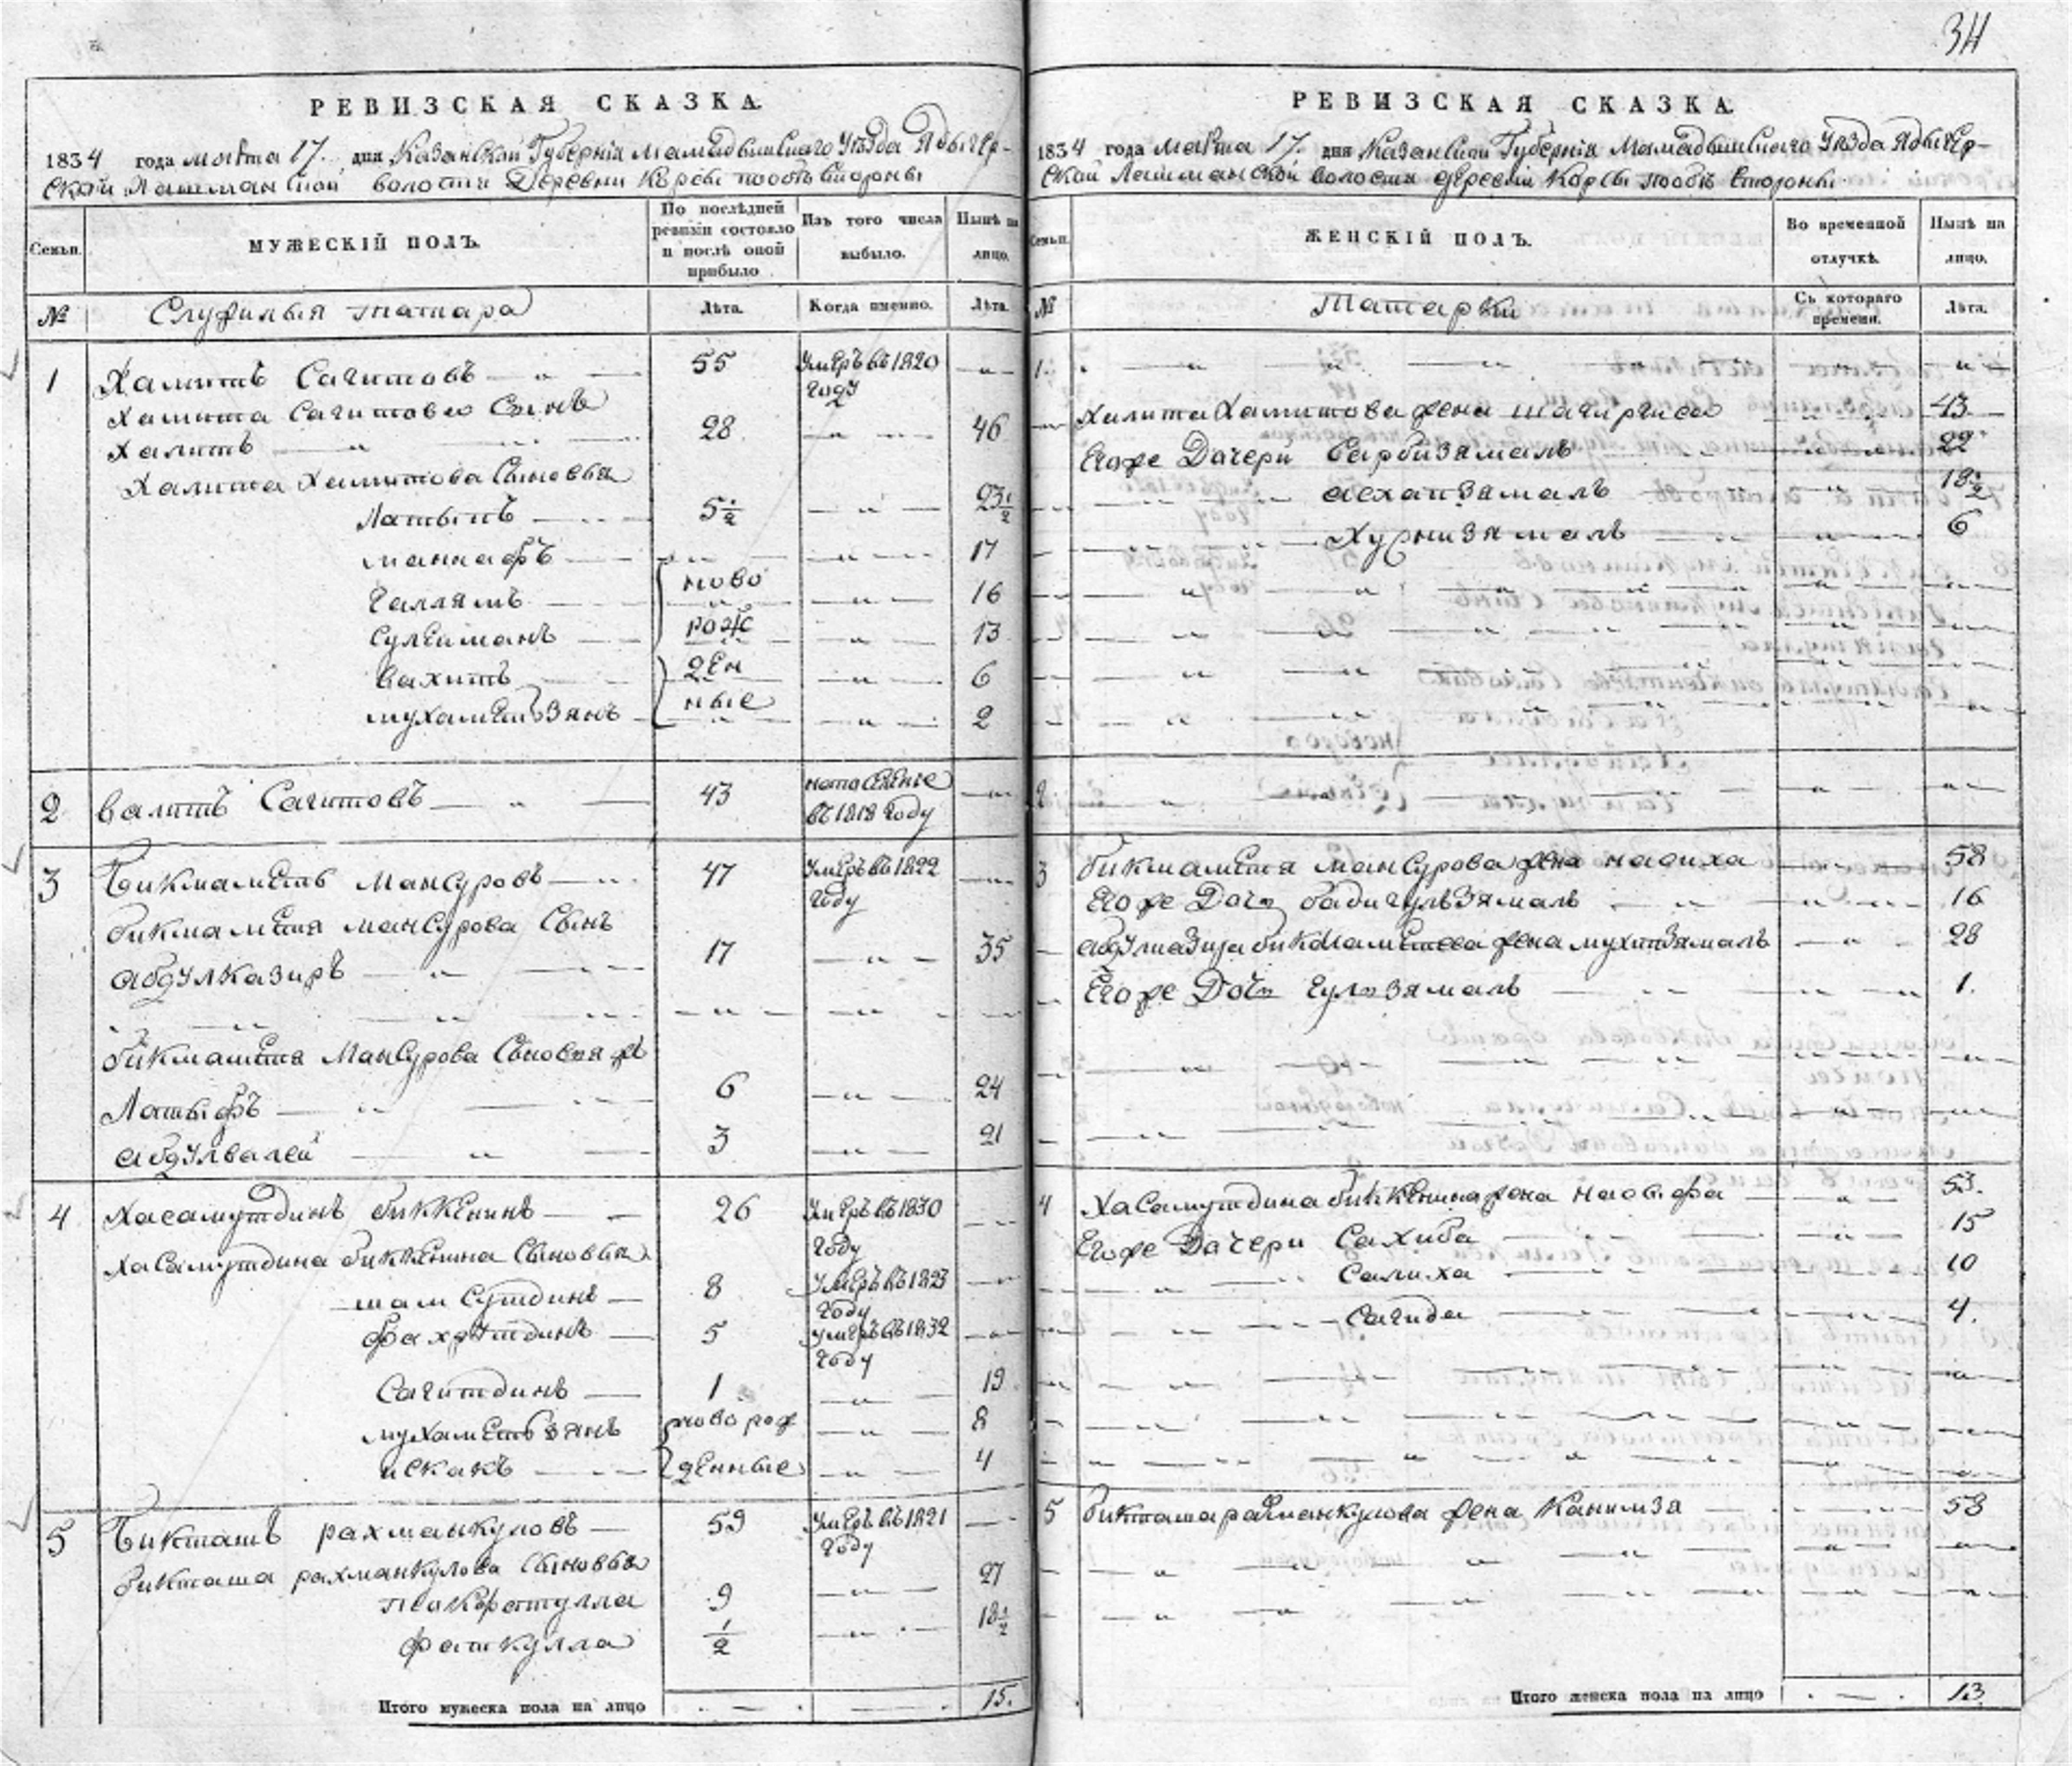 34
РЕВИЗСКАЯ СКАЗКА.
1834 года марта 17. дня Казанской Губернiи Мамадышскаго Уѣзда Ядыгер-
ской Лашманской волости Деревни Корсы по объ стороны
Семьи.
МУЖЕСКIЙ ПОЛЪ.
По послѣдней ревизiи состояло и послѣ оной прибыло
Изъ того числа выбыло.
Нынѣ на лицо.
№
Служилыя татара
Лѣта.
Когда именно.
Лѣта.
1 Халитъ Сагитовъ 55 Умеръ въ 1820 году
Халита Сагитова Сынъ
Халитъ 28 46
Халита Халитова Сыновья
Латыпъ 5 1/2 23 1/2
маннафъ 17
Галлямъ ново 16
Сулейманъ рож 13
Вахитъ ден 6
мухаметьзянъ ные 2
2 Валитъ Сагитовъ 43 на поселенье въ 1818 году
3 Бикмаметь Мансуровъ 47 Умеръ въ 1822 году
бикмаметя мансурова Сынъ
абдулказиръ 17 35
бикмаметя Мансурова Сыновья
Латыфъ 6 24
абдулвалей 3 21
4 Хасамутдинъ биккенинъ 26 Умеръ въ 1830 году
Хасамутдина биккенина Сыновья
шамсутдинъ 8 Умеръ въ 1823 году
фахрутдинъ 5 Умеръ въ 1832 году
Сагитдинъ 1 19
мухаметьзянъ новорож 8
искакъ денные 4
5 Бикташъ рахманкуловъ 59 Умеръ въ 1821 году
бикташа рахманкулова Сыновья
27
9
фаткулла 1/2 18 1/2
Итого мужеска пола на лицо 15.
РЕВИЗСКАЯ СКАЗКА.
1834 года марта 17. дня Казанской Губернiи Мамадышскаго Уѣзда Ядыгер-
ской Лашманской волости деревни Корсы по объ стороны
Семьи.
ЖЕНСКIЙ ПОЛЪ.
Во временной отлучкѣ.
Нынѣ на лицо.
№
Татарки
Съ котораго времени.
Лѣта.
1.
Халита Халитова жена шагиряса 43
Егоже Дочери Сарбизямалъ 22
асхапзямалъ 18 1/2
Хурнизямалъ 6
2
3 бикмаметя мансурова жена насиха 58
Егоже Дочь бадигульзямалъ 16
жена 28
Егоже Дочь Гульзямалъ 1.
4 Хасамутдина биккенина жена 53.
Егоже Дочери Сахиба 15
Салиха 10
Сагида 4.
5 бикташа рахманкулова жена Канимза 58
Итого женска пола на лицо 13